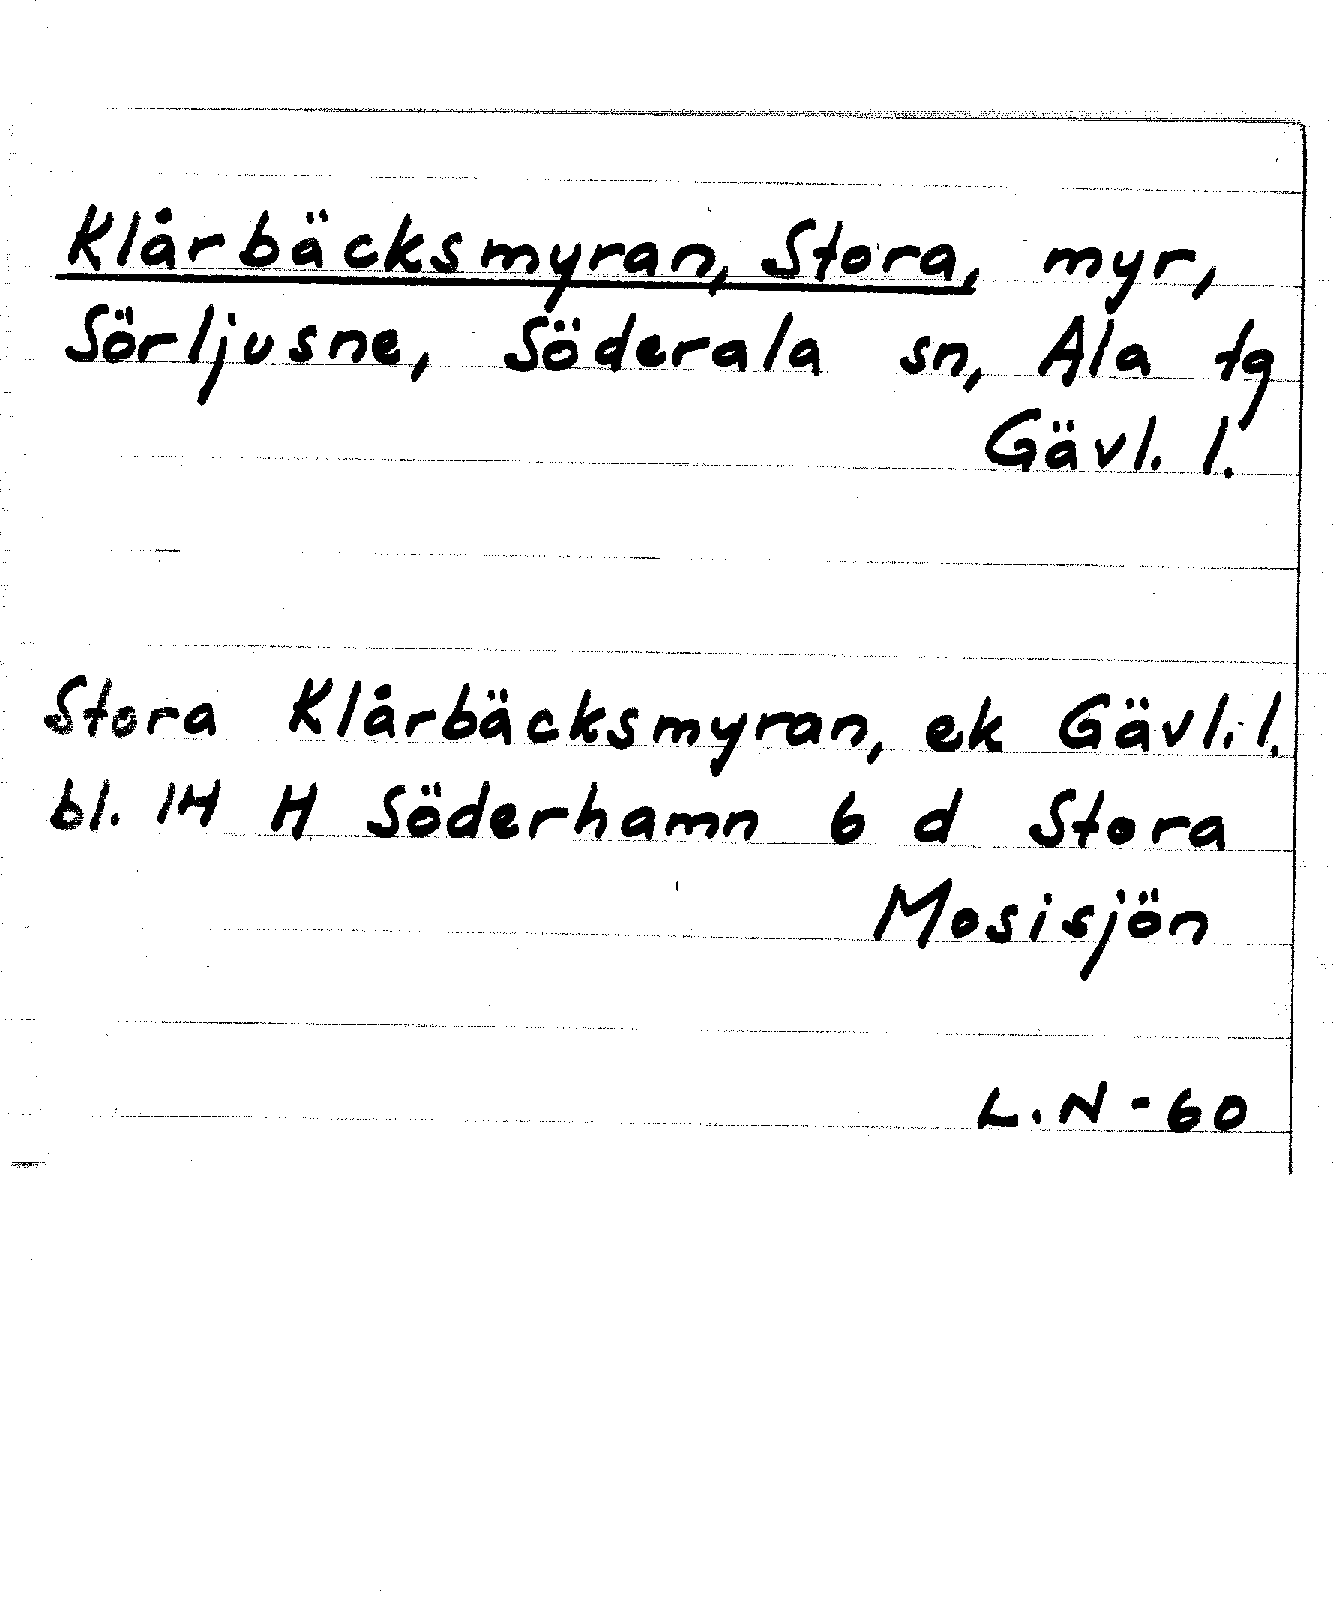 Klårbäcksmyran, Stora, myr,
Sörljusne, Söderala sn, Ala tg
Gävl. l.
Stora Klårbäcksmyran, ek Gävl. l.
bl. 14 H Söderhamn 6 d Stora
Mosisjön
L.N-60